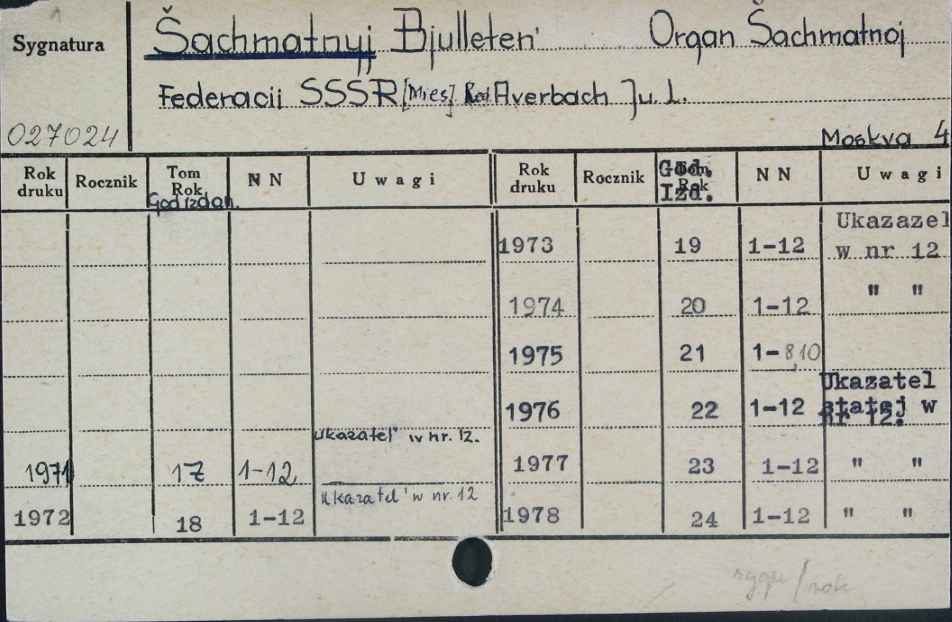 Sygnatura
Šachmatnyj Bjulleten' Organ Šachmatnoj
Federacii SSSR [Mies] Red Averbach Ju. L.
027024
Moskva 4
Rok druku Rocznik Tom Rok God izdan. NN Uwagi
1971 17 1-12 Ukazatel' w nr. 12.
1972 18 1-12 Ukazatel' w nr. 12
Rok druku Rocznik God. Izd. NN Uwagi
1973 19 1-12 Ukazazel w nr 12
1974 20 1-12 " "
1975 21 1-8,10
1976 22 1-12 Ukazatel statej w nr 12.
1977 23 1-12 " "
1978 24 1-12 " "